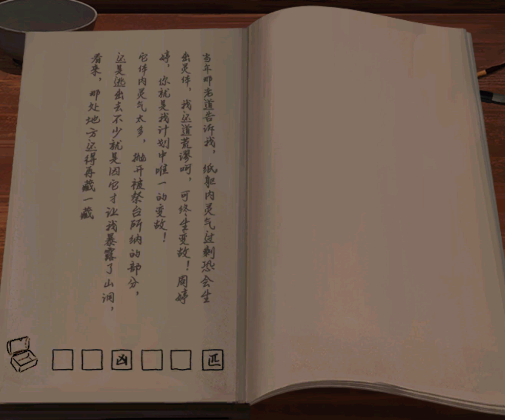 当年那老道告诉我，纸躯内灵气过剩恐会生
出灵体，我还道荒谬呵，可终生变故！周婷
婷，你就是我计划中唯一的变故！
它体内灵气太多，抛开被祭台所纳的部分，
还是逃出去不少就是因它才让我暴露了山洞，
看来，那处地方还得再藏一藏
凶 匹